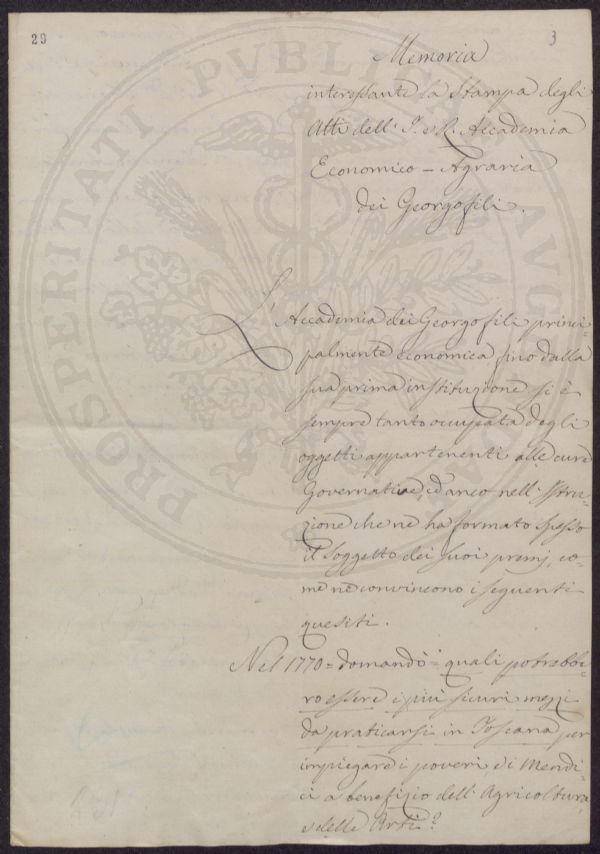 29
3
Memoria
interessante la Stampa degli
Atti dell' I. e R. Accademia
Economico - Agraria
dei Georgofili.
L'Accademia dei Georgofili princi-
palmente economica fino dalla
sua prima instituzione si è
sempre tanto occupata degli
oggetti appartenenti alle cure
Governative, ed anco nell' Istru-
zione che ne ha formato spesso
il Soggetto dei suoi premj, co-
me ne convincono i seguenti
quesiti.
Nel 1770 = domandò = quali potrebbe-
ro essere i più sicuri mezzi
da praticarsi in Toscana per
impiegare i poveri di Mendi-
ci a benefizio dell' Agricoltura
e delle Arti?
PROSPERITATI PUBLICAE AUG